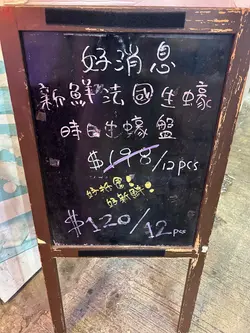 好消息
新鮮法國生蠔
時日生蠔盤
$198/12pcs
好抵食!
好新鮮!
$120/12pcs